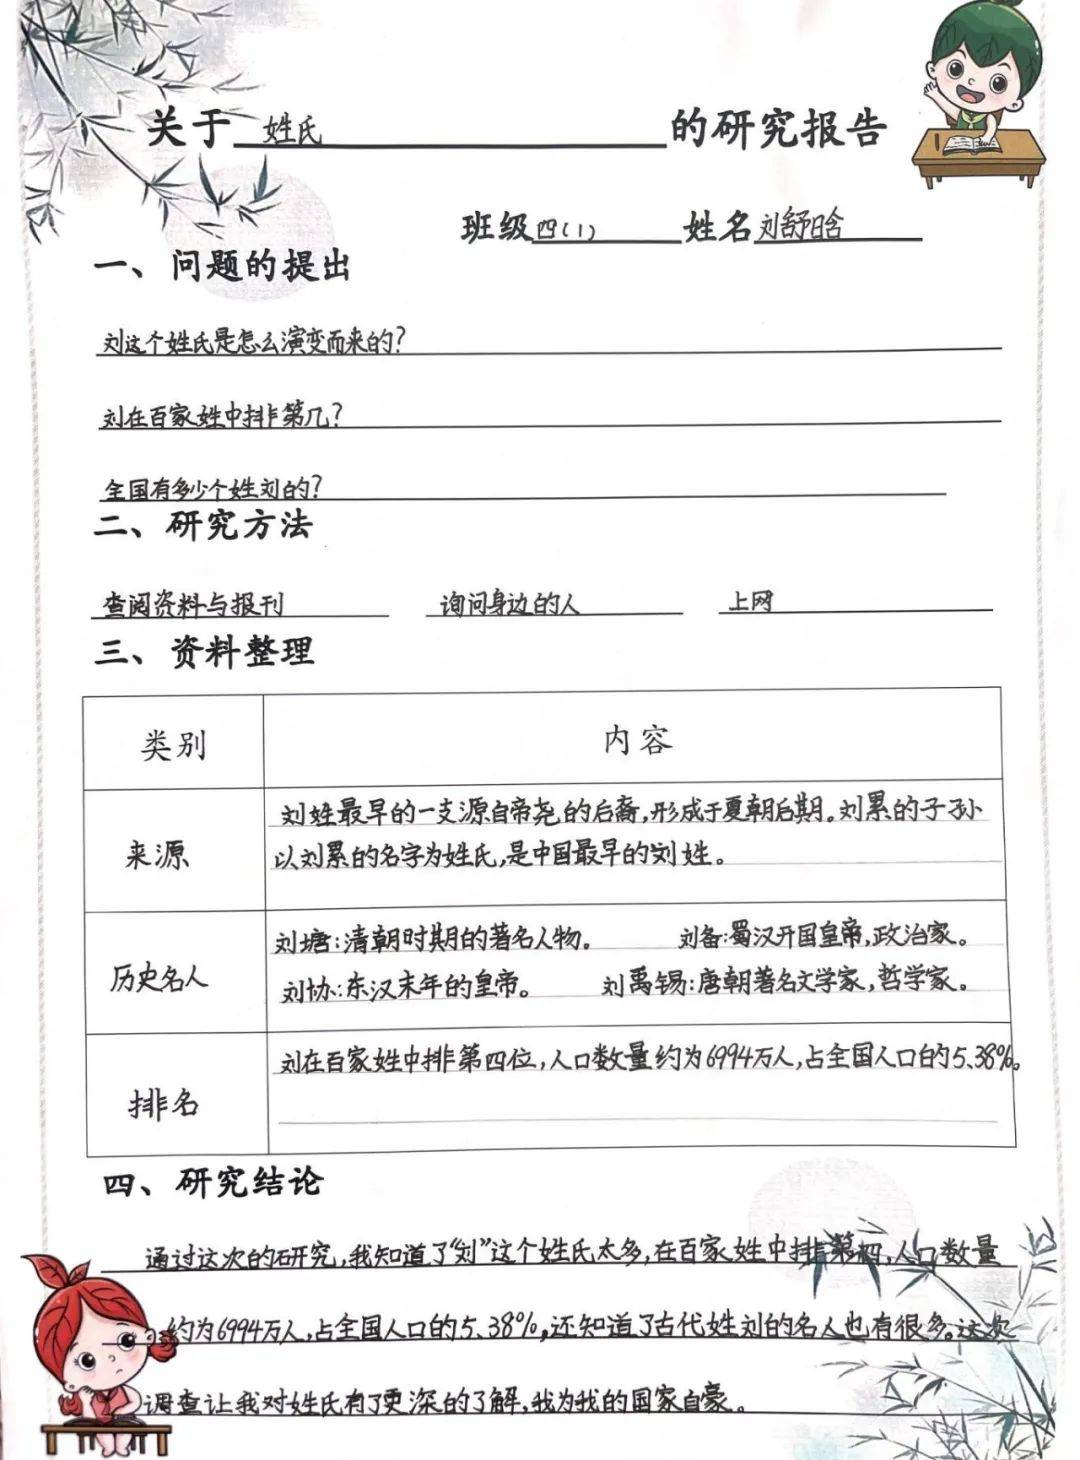 关于 姓氏 的研究报告
班级 四(1) 姓名 刘舒晗
一、问题的提出
刘这个姓氏是怎么演变而来的?
刘在百家姓中排第几?
全国有多少个姓刘的?
二、研究方法
查阅资料与报刊 询问身边的人 上网
三、资料整理
类别 内容
来源
刘姓最早的一支源自帝尧的后裔,形成于夏朝后期。刘累的子孙
以刘累的名字为姓氏,是中国最早的刘姓。
历史名人
刘墉:清朝时期的著名人物。 刘备:蜀汉开国皇帝,政治家。
刘协:东汉末年的皇帝。 刘禹锡:唐朝著名文学家,哲学家。
排名
刘在百家姓中排第四位,人口数量约为6994万人,占全国人口的5.38%。
四、研究结论
通过这次的研究,我知道了“刘”这个姓氏太多,在百家姓中排第四,人口数量
约为6994万人,占全国人口的5.38%,还知道了古代姓刘的名人也有很多。这次
调查让我对姓氏有了更深的了解,我为我的国家自豪。